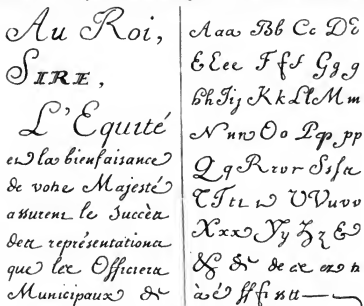 Au Roi,
SIRE,
L'Equité
et la bienfaisance
de votre Majesté
assurent le Succès
des représentations
que les Officiers
Municipaux de
Aaa Bb Cc Dd
E Eee F f f Gg g
hh Iij K k L l M m
N nn O o P p pp
Q q R r v r S s f s
T T t t v U V u v v
X x x Y y Z z &
& de de ce en n
à é ff ft tt